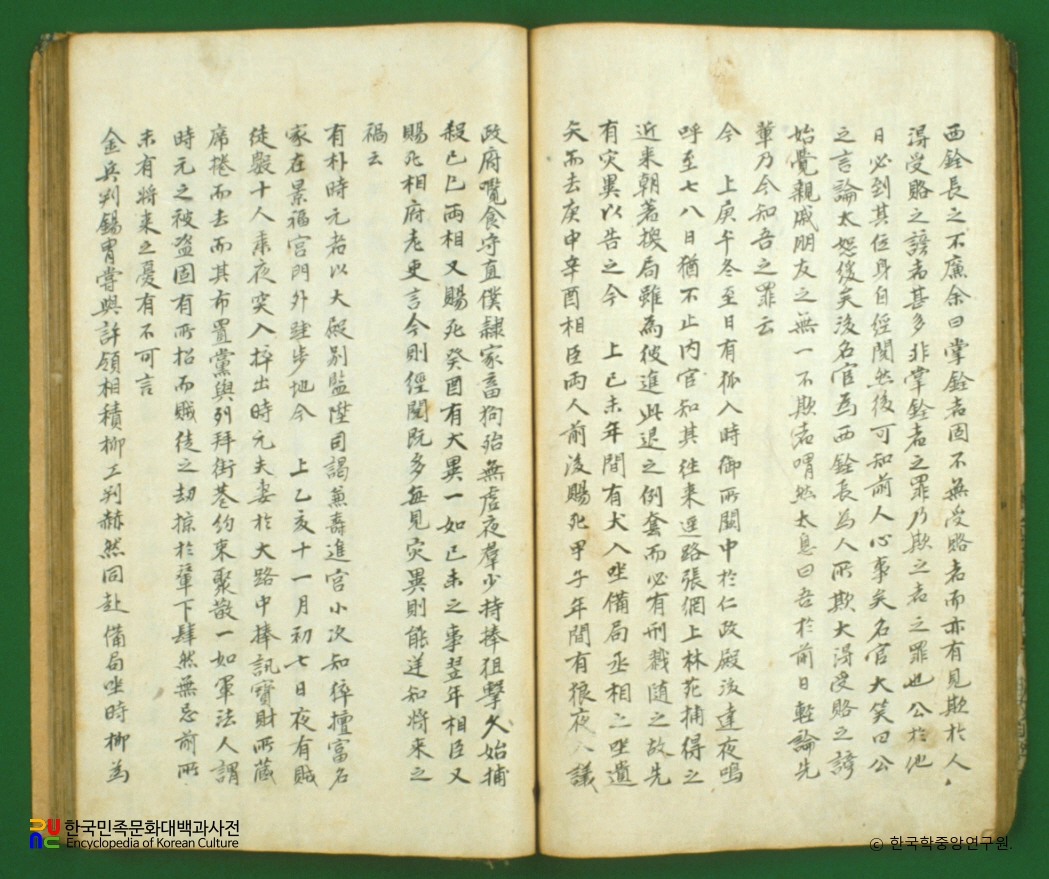 西銓長之不廉余曰掌銓者固不無受賂者而亦有見欺於人
淂受賂之謗者甚多非掌銓者之罪乃欺之者之罪也公於他
日必到其位身自經閱然後可知前人心事矣名官大笑曰公
之言論太恕緩矣後名官爲西銓長為人所欺大淂受賂之謗
始覺親戚朋友之無一不欺者喟然太息曰吾於前日輕論先
輩乃今知吾之罪云
今 上庚午冬至日有狐入時御所闥中於仁政殿後達夜鳴
呼至七八日猶不止內官知其徃来逕路張網上林苑捕得之
近来朝著換局雖爲彼進此退之例套而必有刑戮隨之故先
有灾異以告之今 上己未年間有犬入坐備局丞相之坐遺
矢而去庚申辛酉相臣兩人前後賜死甲子年間有狼夜入議
政府嚙食守直僕隷家畜狗殆無虛夜羣少持捧狙擊久始捕
殺己巳兩相又賜死癸酉有犬異一如己未之事翌年相臣又
賜死相府老吏言今則經閱旣多每見灾異則能逆知将来之
禍云
有朴時元者以大殿别監陞司謁兼壽進宮小次知猝擅富名
家在景福宮門外跬步地今 上乙亥十一月初七日夜有賊
徒數十人乘夜突入捽出時元夫妻於大路中捧訊寶財所藏
席捲而去而其布置黨與列拜街巷約束聚散一如軍法人謂
時元之被盗固有所招而賊徒之劫掠於輦下肆然無忌前所
未有将来之憂有不可言
金兵判錫胄嘗與許領相積柳工判赫然同赴備局坐時柳爲
한국민족문화대백과사전
Encyclopedia of Korean Culture
© 한국학중앙연구원.